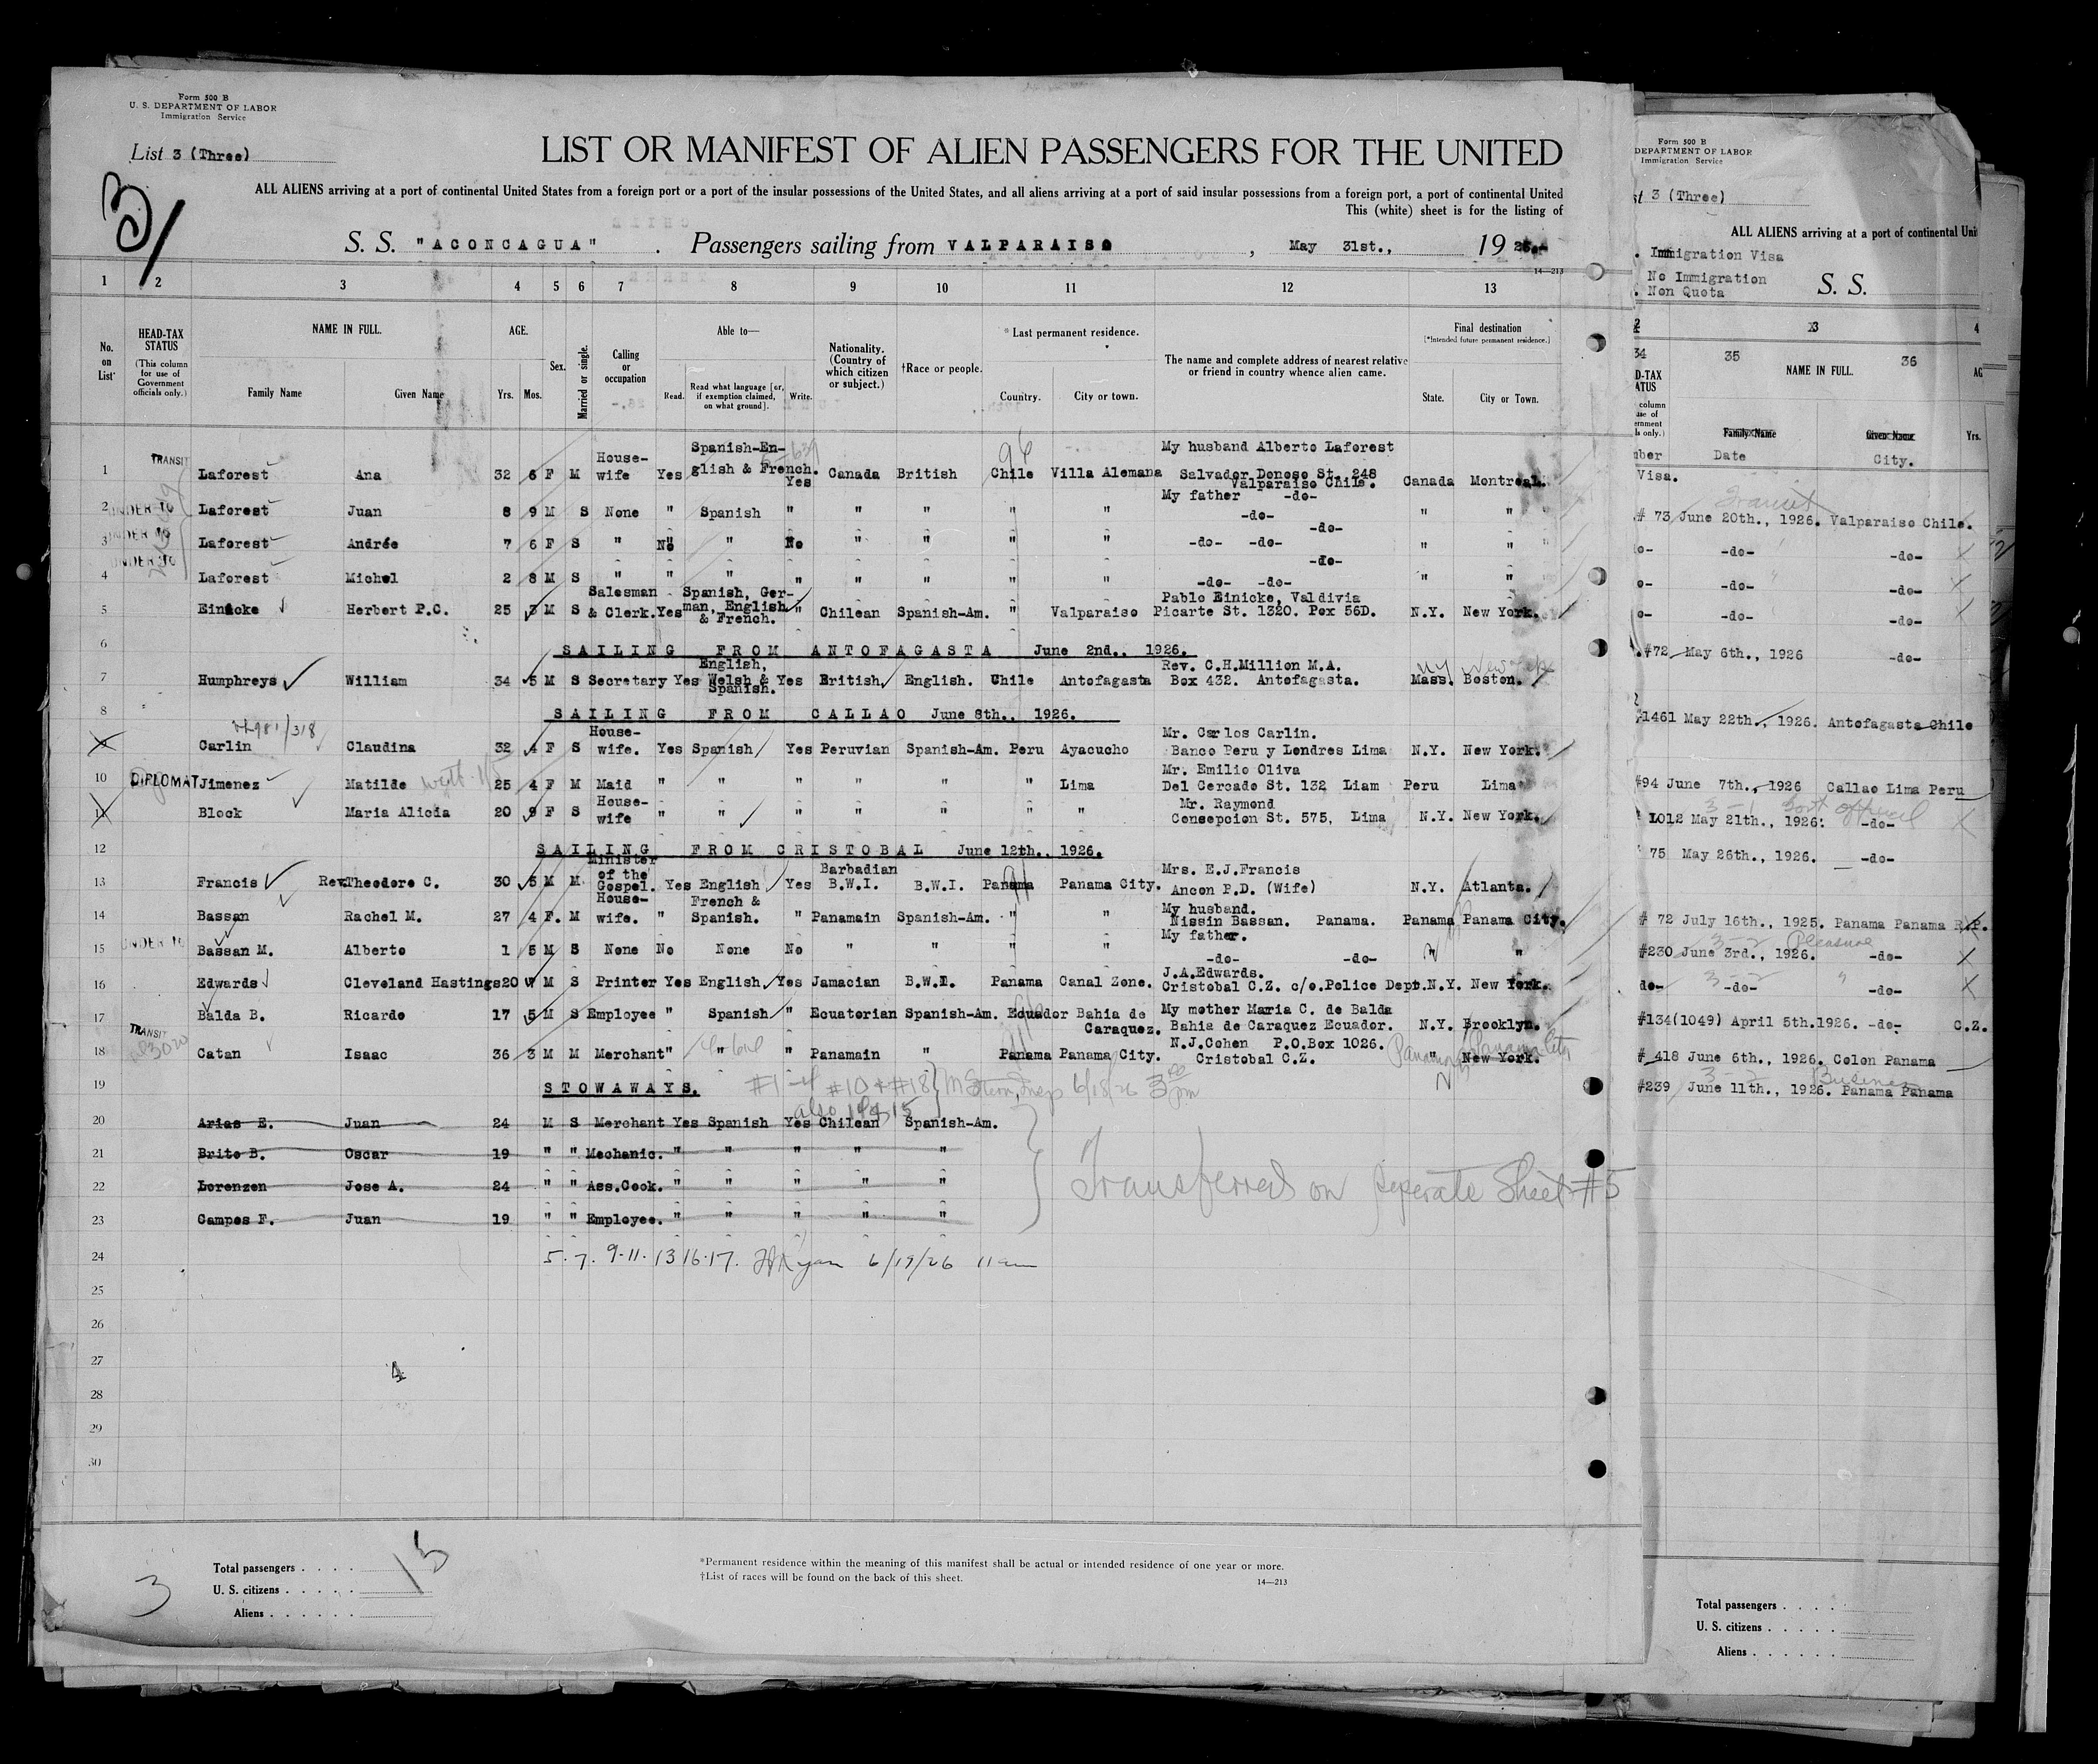 Form 500 B
U. S. DEPARTMENT OF LABOR
Immigration Service
List 3 (Three)
3/
LIST OR MANIFEST OF ALIEN PASSENGERS FOR THE UNITED
ALL ALIENS arriving at a port of continental United States from a foreign port or a port of the insular possessions of the United States, and all aliens arriving at a port of said insular possessions from a foreign port, a port of continental United
This (white) sheet is for the listing of
S. S. "ACONCAGUA" . Passengers sailing from VALPARAISO , May 31st., 1926.-
14—213
1 2 3 4 5 6 7 8 9 10 11 12 13
No. on List
HEAD-TAX STATUS (This column for use of Government officials only.)
NAME IN FULL. Family Name Given Name
AGE. Yrs. Mos.
Sex.
Married or single.
Calling or occupation
Able to— Read. Read what language [or, if exemption claimed, on what ground]. Write.
Nationality. (Country of which citizen or subject.)
†Race or people.
*Last permanent residence. Country. City or town.
The name and complete address of nearest relative or friend in country whence alien came.
Final destination [*Intended future permanent residence.] State. City or Town.
1 TRANSIT Laforest Ana 32 6 F M House-wife Yes Spanish-English & French. Yes Canada British Chile Villa Alemana My husband Alberto Laforest Salvador Donoso St. 248 Valparaiso Chile. Canada Montreal.
2 UNDER 16 Laforest Juan 8 9 M S None " Spanish " " " " " My father -do- -do- " "
3 UNDER 16 Laforest Andrée 7 6 F S " No " No " " " " -do- -do- -do- " "
4 UNDER 16 Laforest Michel 2 8 M S " " " " " " " " -do- -do- -do- " "
5 Einicke Herbert P.C. 25 3 M S Salesman & Clerk. Yes Spanish, German, English & French. " Chilean Spanish-Am. " Valparaiso Pablo Einicke, Valdivia Picarte St. 1320. Pox 56D. N.Y. New York.
6 SAILING FROM ANTOFAGASTA June 2nd., 1926.
7 Humphreys William 34 5 M S Secretary Yes English, Welsh & Spanish. Yes British English. Chile Antofagasta Rev. C.H.Million M.A. Box 432. Antofagasta. Mass. Boston. NY New York
8 SAILING FROM CALLAO June 8th., 1926.
9 Carlin Claudina 32 4 F S House-wife. Yes Spanish Yes Peruvian Spanish-Am. Peru Ayacucho Mr. Carlos Carlin. Banco Peru y Londres Lima N.Y. New York.
10 DIPLOMAT Jimenez Matilde 25 4 F M Maid " " " " " " Lima Mr. Emilio Oliva Del Cercado St. 132 Liam Peru Lima
11 Block Maria Alicia 20 9 F S House-wife " " " " " " " Mr. Raymond Consepcion St. 575, Lima N.Y. New York.
12 SAILING FROM CRISTOBAL June 12th., 1926.
13 Francis Rev.Theodore C. 30 5 M M Minister of the Gospel. Yes English Yes Barbadian B.W.I. B.W.I. Panama Panama City. Mrs. E.J.Francis Ancon P.D. (Wife) N.Y. Atlanta.
14 Bassan Rachel M. 27 4 F. M House-wife. " French & Spanish. " Panamain Spanish-Am. " " My husband. Nissin Bassan. Panama. Panama Panama City.
15 UNDER 16 Bassan M. Alberto 1 5 M S None No None No " " " " My father. -do- -do- " "
16 Edwards Cleveland Hastings 20 M S Printer Yes English. Yes Jamacian B.W.I. Panama Canal Zone. J.A.Edwards. Cristobal C.Z. c/o.Police Dept. N.Y. New York.
17 Balda B. Ricardo 17 5 M S Employee " Spanish " Ecuatorian Spanish-Am. Ecuador Bahia de Caraquez. My mother Maria C. de Balda Bahia de Caraquez Ecuador. N.Y. Brooklyn.
18 TRANSIT Catan Isaac 36 3 M M Merchant " " " Panamain " Panama Panama City. N.J.Cohen P.O.Box 1026. Cristobal C.Z. " New York. Panama Panama City
19 STOWAWAYS. #1-4 #10 + #18 6/18/26 3 pm
also 14 & 15
20 Arias E. Juan 24 M S Merchant Yes Spanish Yes Chilean Spanish-Am.
21 Brito B. Oscar 19 " " Mechanic. " " " " "
22 Lorenzen Jose A. 24 " " Ass.Cook. " " " " "
23 Campos F. Juan 19 " " Employee. " " " " "
Transferred on Seperate Sheet #5
24 5. 7. 9-11. 13 16-17. 6/19/26 11 am
25
26
27
28
29
30
Total passengers . . . . 15
U. S. citizens . . . . .
Aliens . . . . . .
3
*Permanent residence within the meaning of this manifest shall be actual or intended residence of one year or more.
†List of races will be found on the back of this sheet.
14—213
Form 500 B
DEPARTMENT OF LABOR
Immigration Service
st 3 (Three)
ALL ALIENS arriving at a port of continental Uni
. Immigration Visa
No Immigration
. Non Quota
S. S.
2 3 4
34 35 36
D-TAX ATUS
NAME IN FULL.
Family Name Given Name Yrs.
mber Date City.
Visa.
Transit
# 73 June 20th., 1926. Valparaiso Chile.
o- -do- -do-
o- -do- -do-
o- -do- -do-
#72 May 6th., 1926 -do-
1461 May 22th., 1926. Antofagasta Chile
#94 June 7th., 1926 Callao Lima Peru
1012 May 21th., 1926. -do-
75 May 26th., 1926. -do-
# 72 July 16th., 1925. Panama Panama R.P.
3-2 Pleasure
#230 June 3rd., 1926. -do-
do- 3-2 -do- " -do-
#134(1049) April 5th.1926. -do- C.Z.
# 418 June 6th., 1926. Colon Panama
3-2 Business
#239 June 11th., 1926. Panama Panama
Total passengers . . . .
U. S. citizens . . . . .
Aliens . . . . . .